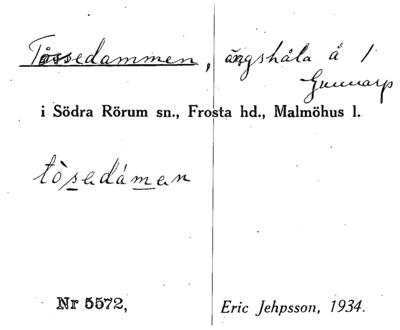 Tåssedammen, ängshåla å 1
Gunnarp
i Södra Rörum sn., Frosta hd., Malmöhus l.
tòsedámen
Nr 5572,
Eric Jehpsson, 1934.